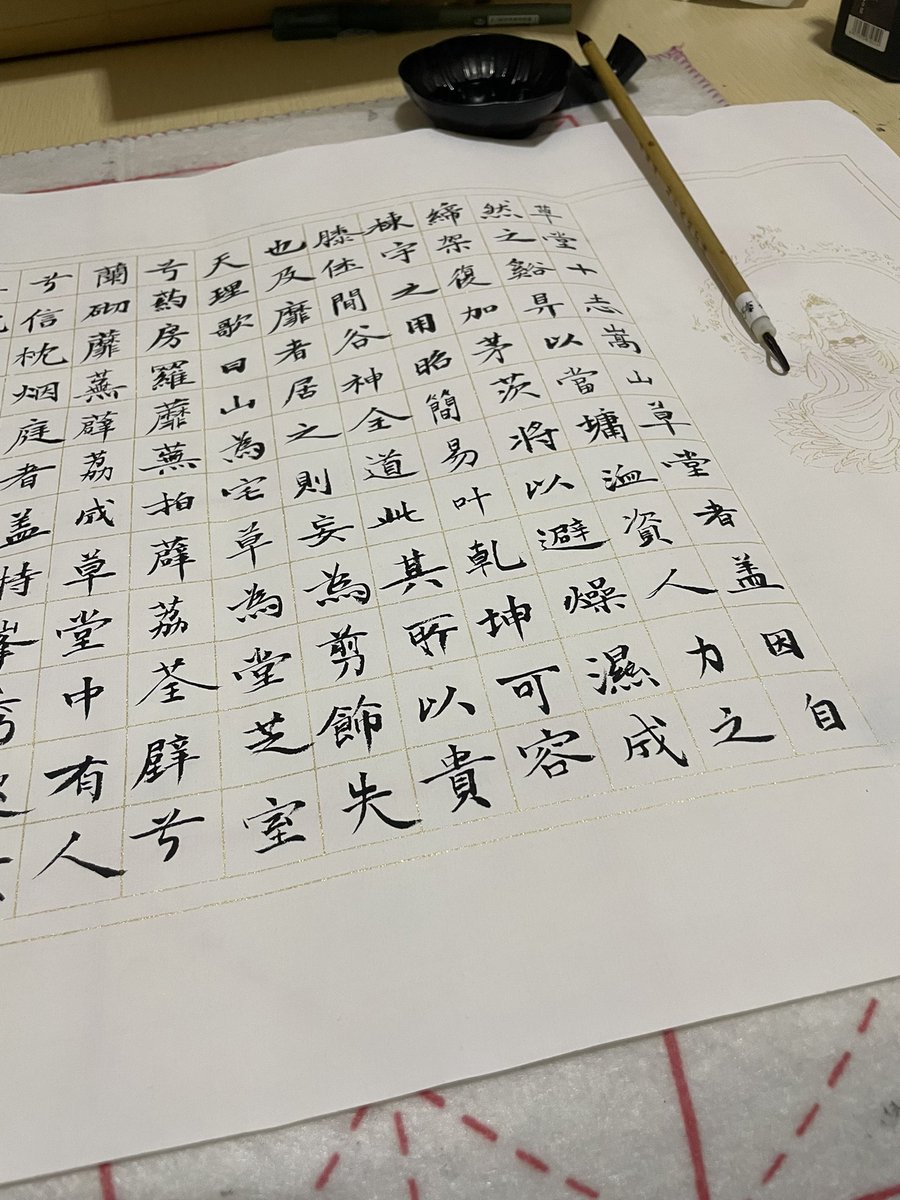 草堂十志嵩山草堂者盖因自
然之谿阜以當墉洫資人力之
締架復加茅茨將以避燥濕成
棟宇之用昭簡易叶乾坤可容
膝休閒谷神全道此其所以貴
也及靡者居之則妄為剪飾失
天理歌曰山為宅草為堂芝室
兮葯房羅蘼蕪拍薜荔荃壁兮
蘭砌蘼蕪薜荔成草堂中有人
兮信枕烟庭者盖特峯秀